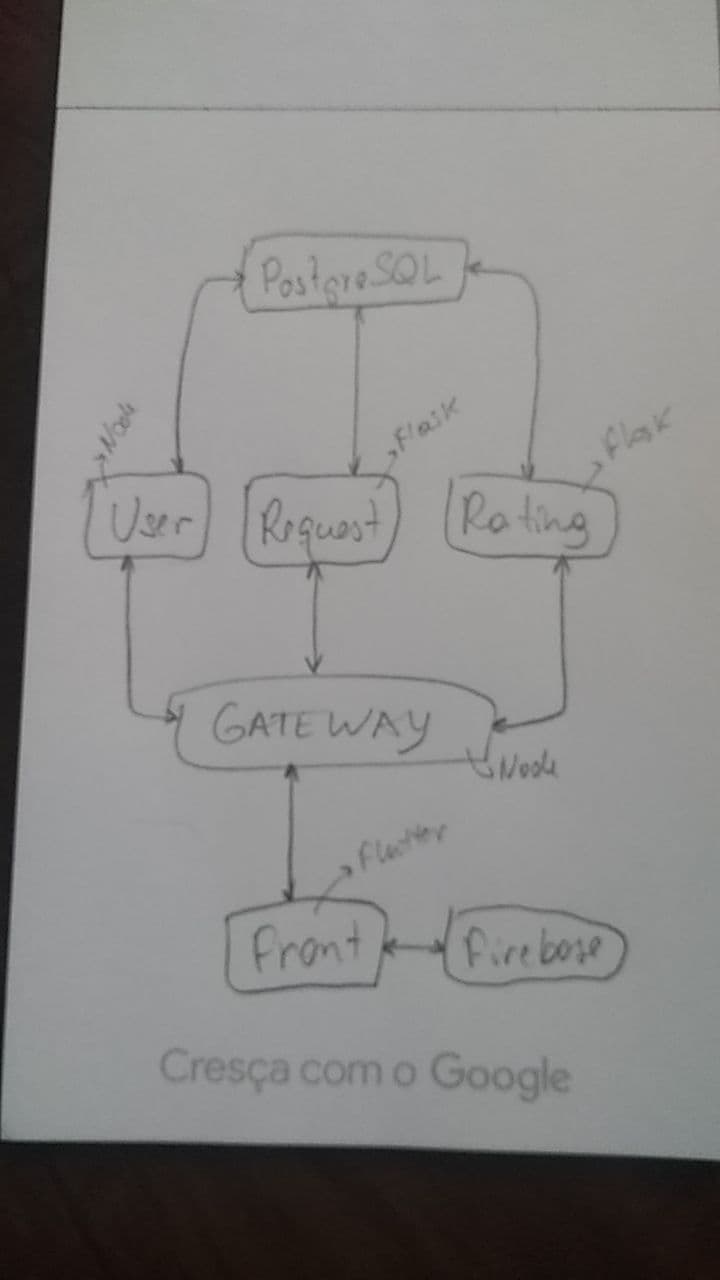 PostgreSQL
Node
Flask
Flask
User
Request
Rating
GATEWAY
Node
Flutter
Front
Firebase
Cresça com o Google